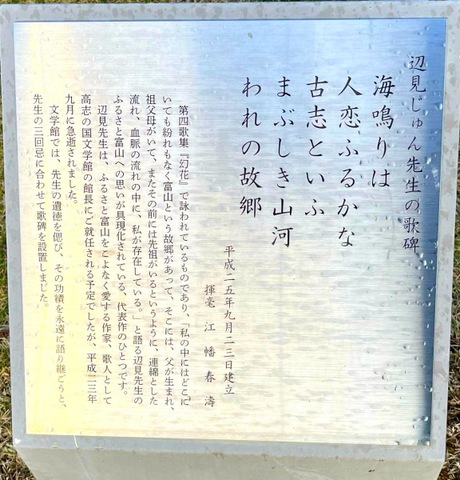 辺見じゅん先生の歌碑
海鳴りは
人恋ふるかな
古志といふ
まぶしき山河
われの故郷
平成二五年九月二三日建立
揮毫 江幡春濤
第四歌集『幻花』で詠われているものであり、「私の中にはどこに
いても紛れもなく富山という故郷があって、そこには、父が生まれ、
祖父母がいて、またその前には先祖がいるというように、連綿とした
流れ、血脈の流れの中に、私が存在している。」と語る辺見先生の
ふるさと富山への思いが具現化されている、代表作のひとつです。
辺見先生は、ふるさと富山をこよなく愛する作家、歌人として
高志の国文学館の館長にご就任される予定でしたが、平成二三年
九月に急逝されました。
文学館では、先生の遺徳を偲び、その功績を永遠に語り継ごうと、
先生の三回忌に合わせて歌碑を設置しました。